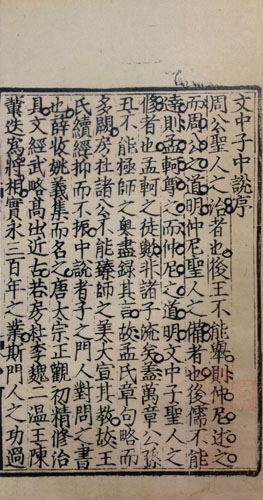 文中子中說序
周公聖人之治者也後王不能舉則仲尼述之
而周公之道明仲尼聖人之備者也後儒不能
達則孟軻尊之而仲尼之道明文中子聖人之
修者也孟軻之徒歟非諸子流矣蓋萬章公孫
丑不能極師之奧盡錄其言故孟氏章句略而
多闕房杜諸公不能臻師之美大宣其教故王
氏續經抑而不振中說者子之門人對問之書
也薛收姚義集而名之唐太宗正觀初精修治
具文經武略高出近古若房杜李魏二溫王陳
輩迭為將相實永三百年之業斯門人之功過